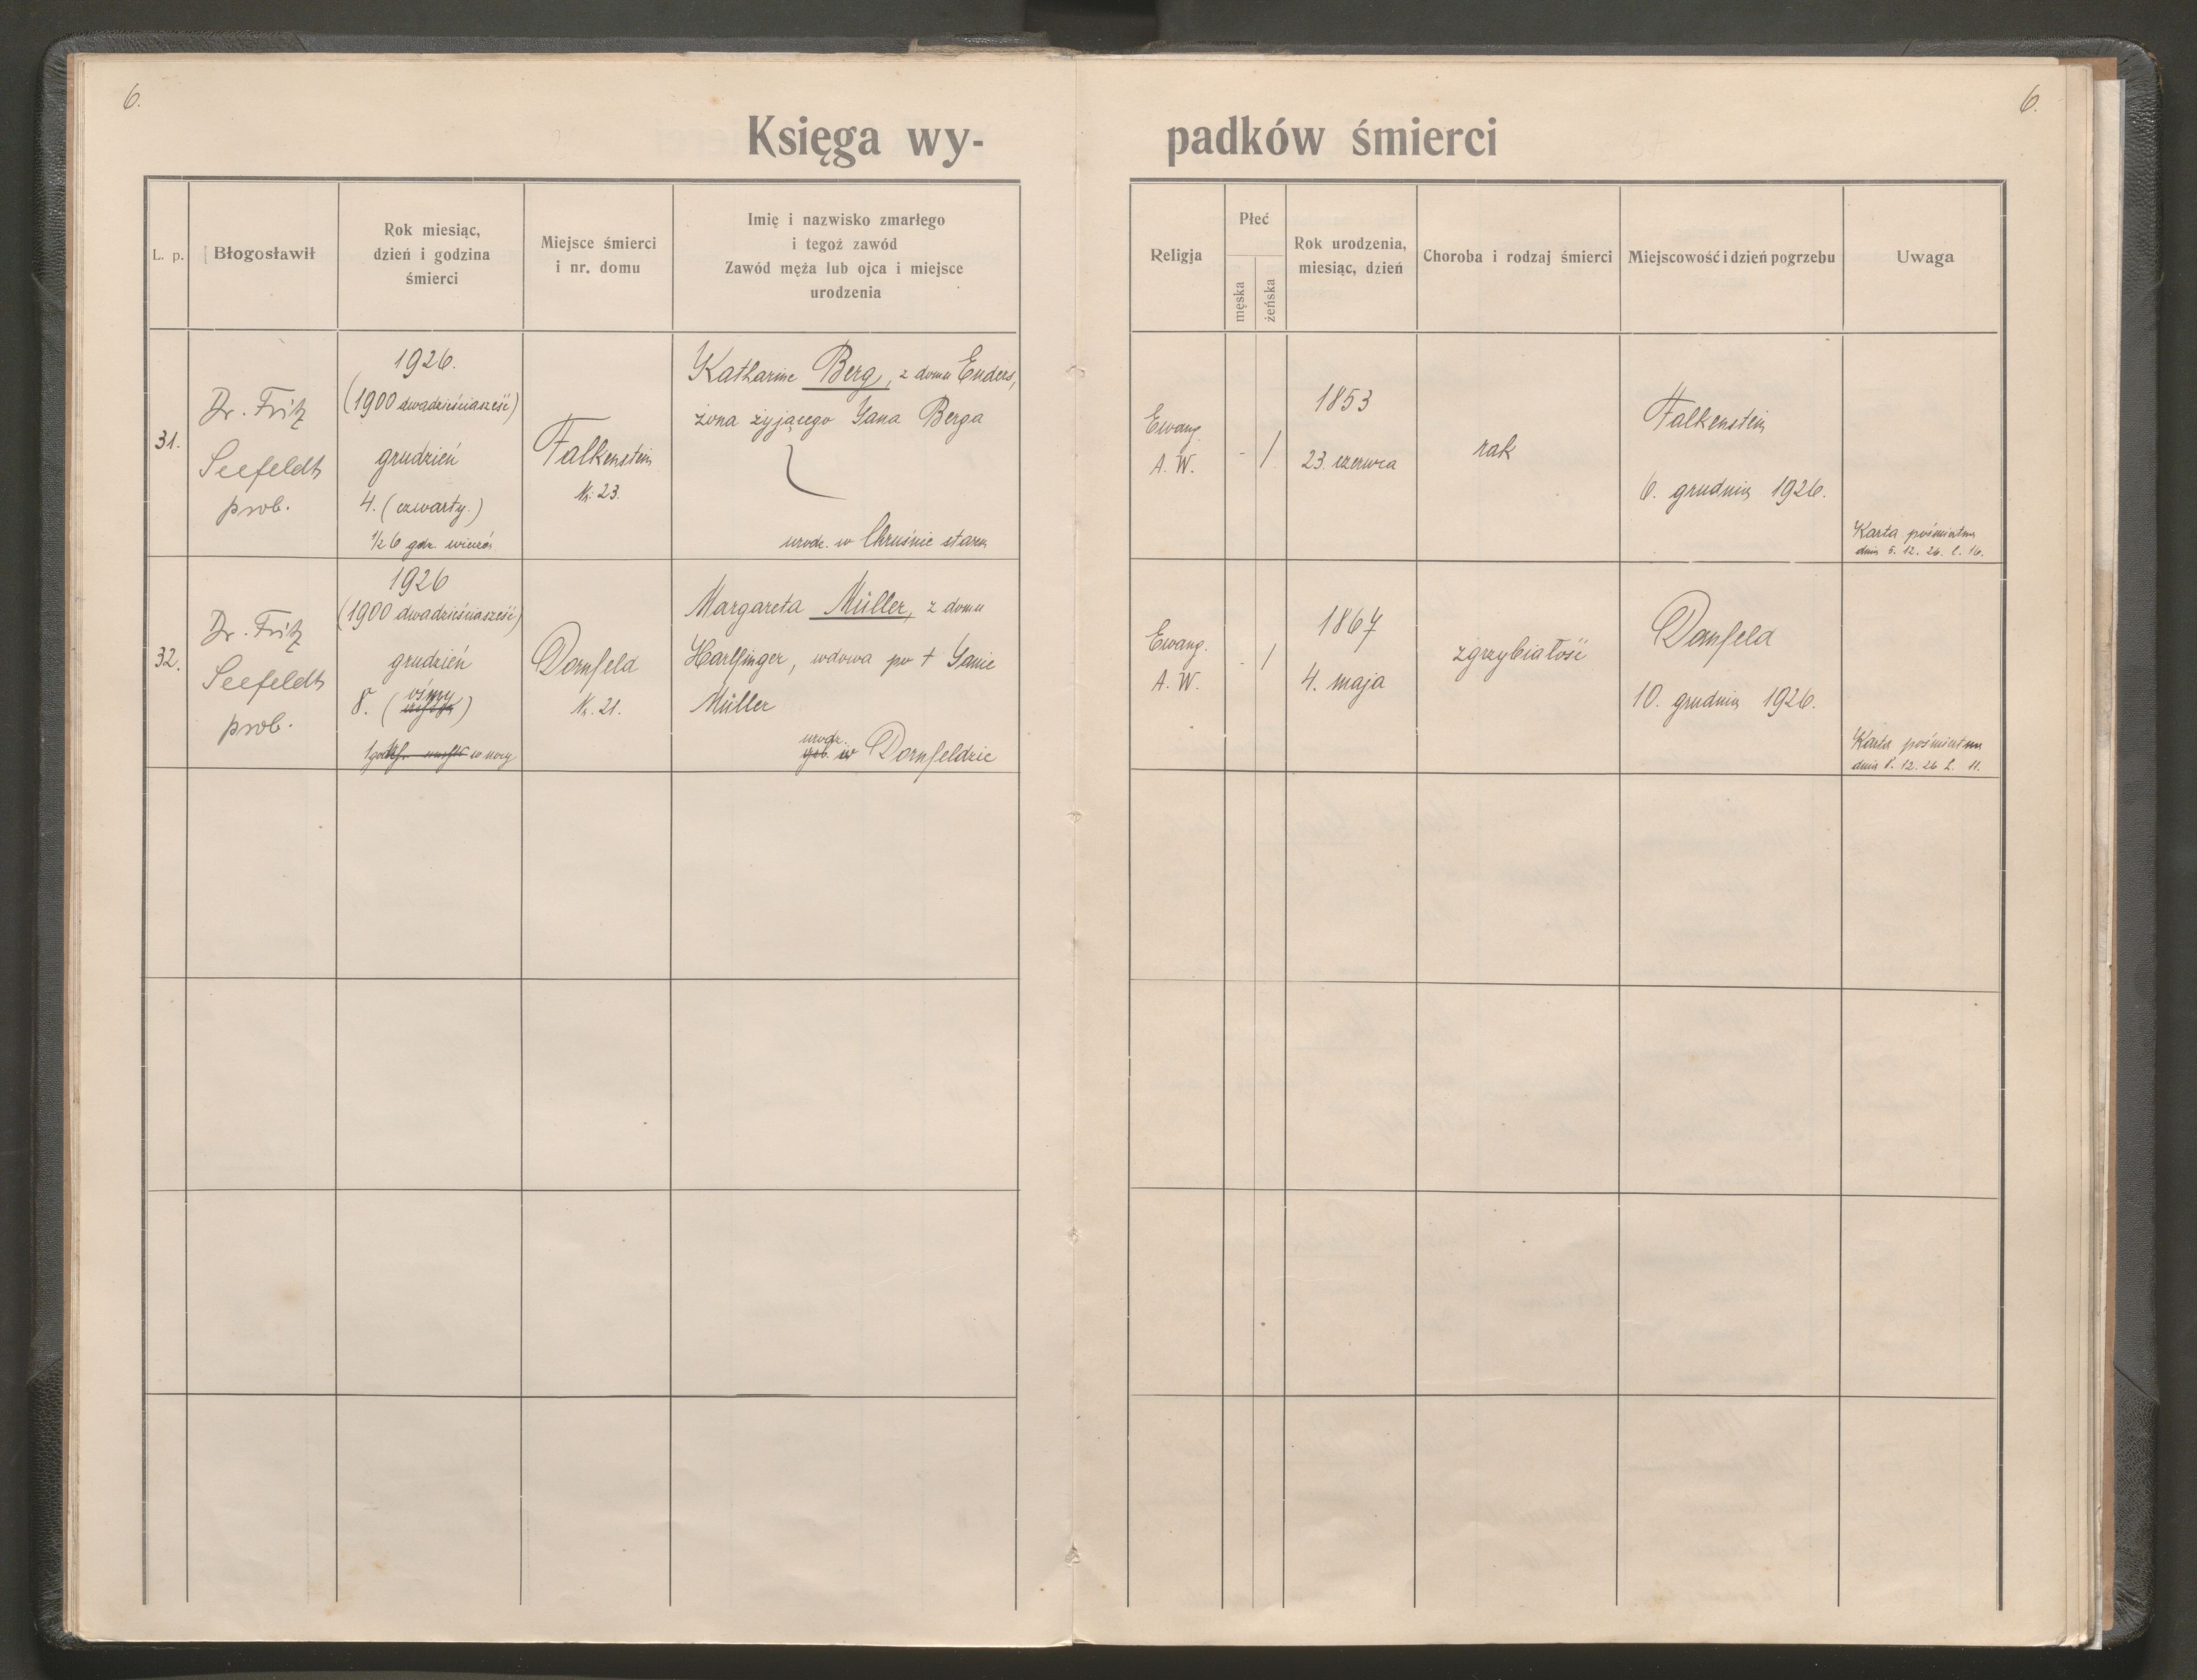 6.
6.
Księga wy-
padków śmierci
L. p.
Błogosławił
Rok miesiąc,
dzień i godzina
śmierci
Miejsce śmierci
i nr. domu
Imię i nazwisko zmarłego
i tegoż zawód
Zawód męża lub ojca i miejsce
urodzenia
Religja
Płeć
męska
żeńska
Rok urodzenia,
miesiąc, dzień
Choroba i rodzaj śmierci
Miejscowość i dzień pogrzebu
Uwaga
31.
Dr. Fritz
Seefeldt
prob.
1926.
(1900 dwadzieściasześć)
grudzień
4. (czwarty.)
1/2 6 godz. wieczór
Falkenstein
Nr. 23.
Katharine Berg, z domu Enders,
żona żyjącego Jana Berga
urodz. w Chruśnie starem
Ewang.
A. W.
- /
1853
23. czerwca
rak
Falkenstein
6. grudnia 1926.
Karta pośmiertna
dnia 5. 12. 26. l. 16.
32.
Dr. Fritz
Seefeldt
prob.
1926
(1900 dwadzieściasześć)
grudzień
8. (ósmy)
1 godz. w nocy
Dornfeld
Nr. 21.
Margareta Müller, z domu
Harlfinger, wdowa po † Janie
Müller
urodz.
w Dornfeldzie
Ewang.
A. W.
- /
1867
4. maja
zgrzybiałość
Dornfeld
10. grudnia 1926.
Karta pośmiertna
dnia 8. 12. 26 L. 11.